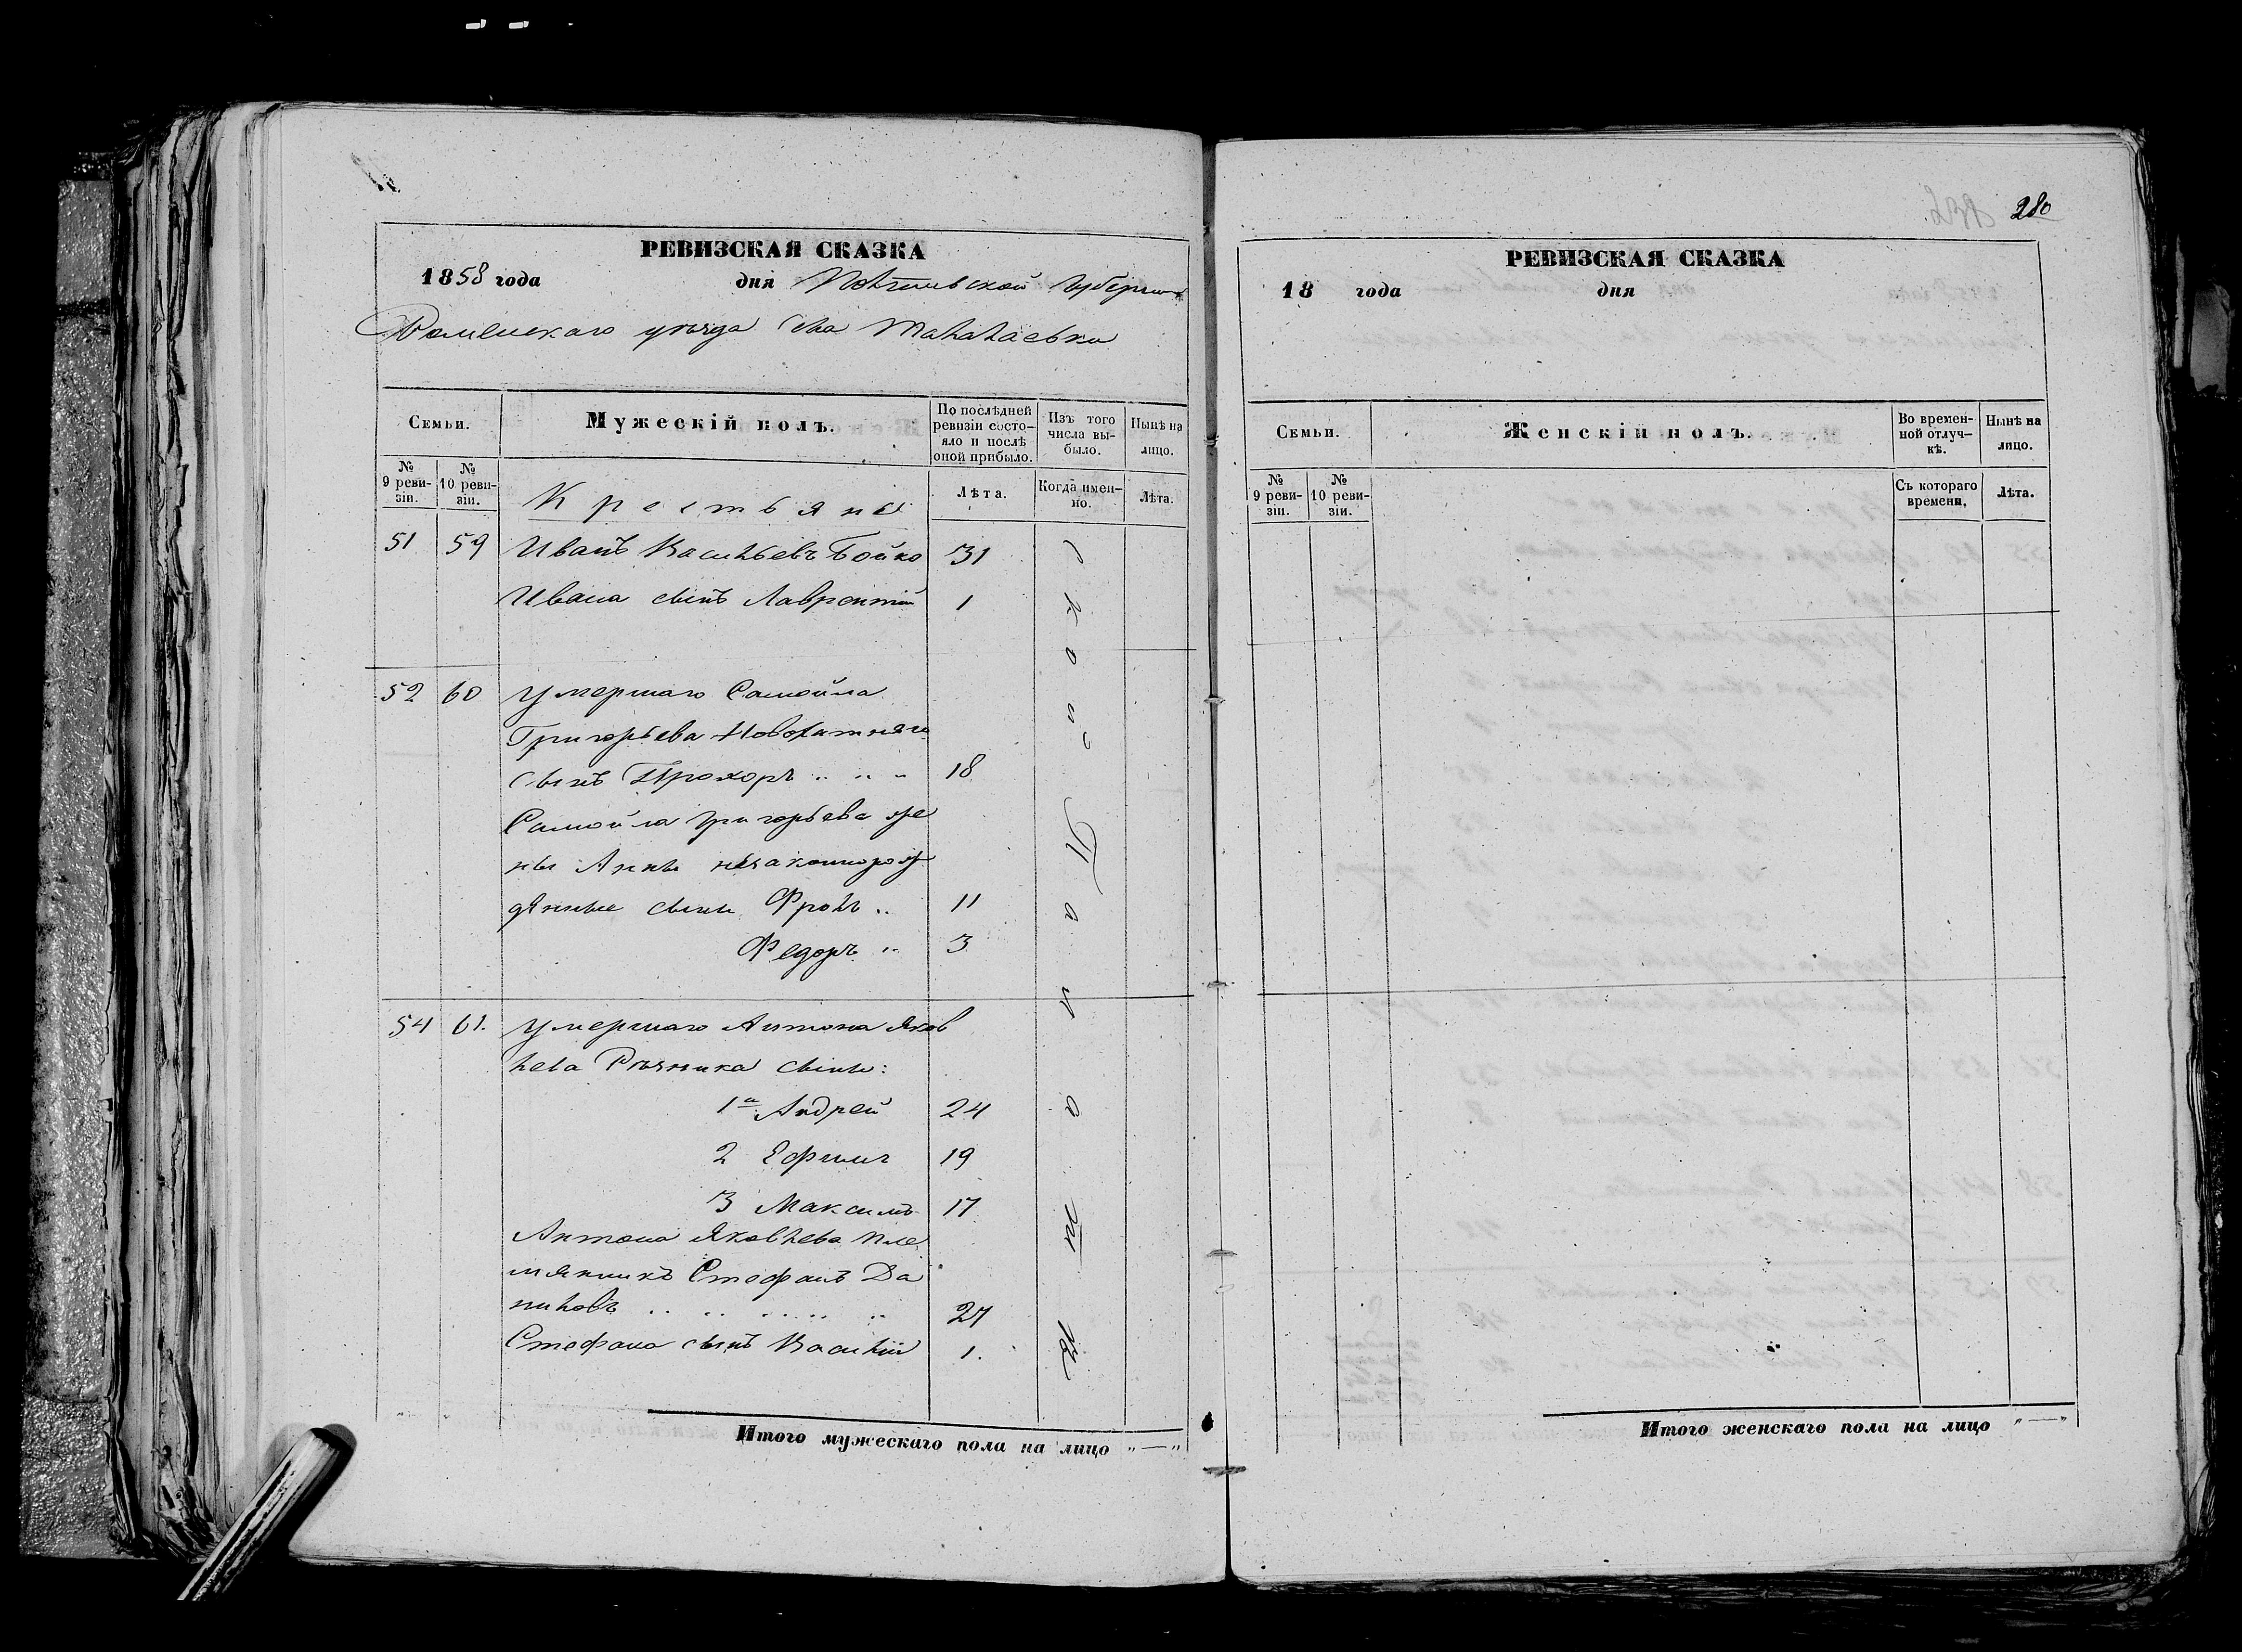 РЕВИЗСКАЯ СКАЗКА
1858 года дня Полтавской Губернии
Роменскаго уезда Села Талалаевки
Семьи.
Мужескій полъ.
По послѣдней ревизіи состо-
яло и послѣ оной прибыло.
Изъ того числа вы-
было.
Нынѣ на лицо.
№ 9 реви-
зіи.
№ 10 реви-
зіи.
Крестьяне
Лѣта.
Когда имен-
но.
Лѣта.
51 59 Иванъ Васильевъ Бойко 31
Ивана сынъ Лаврентій 1
52 60 Умершаго Самойла
Григорьева
сынъ Прохоръ .. .. .. 18
Самойла Григорьева же
ны Анны незаконорож
дянные сыны Фролъ .. 11
Федоръ .. 3
54 61. Умершаго Антона Яков
лева Резника сыны:
1й Андрей 24
2 Ефимъ 19
3 Максимъ 17
Антона Яковлева пле
мянникъ Стефанъ Да
ниловъ .. .. .. .. .. 27
Стефана сынъ Василій 1.
Итого мужескаго пола на лицо „—„
280
РЕВИЗСКАЯ СКАЗКА
18 года дня
Семьи.
Женскій полъ.
Во времен-
ной отлуч-
кѣ.
Нынѣ на
лицо.
№ 9 реви-
зіи.
№ 10 реви-
зіи.
Съ котораго
времени,
Лѣта.
Итого женскаго пола на лицо „—„